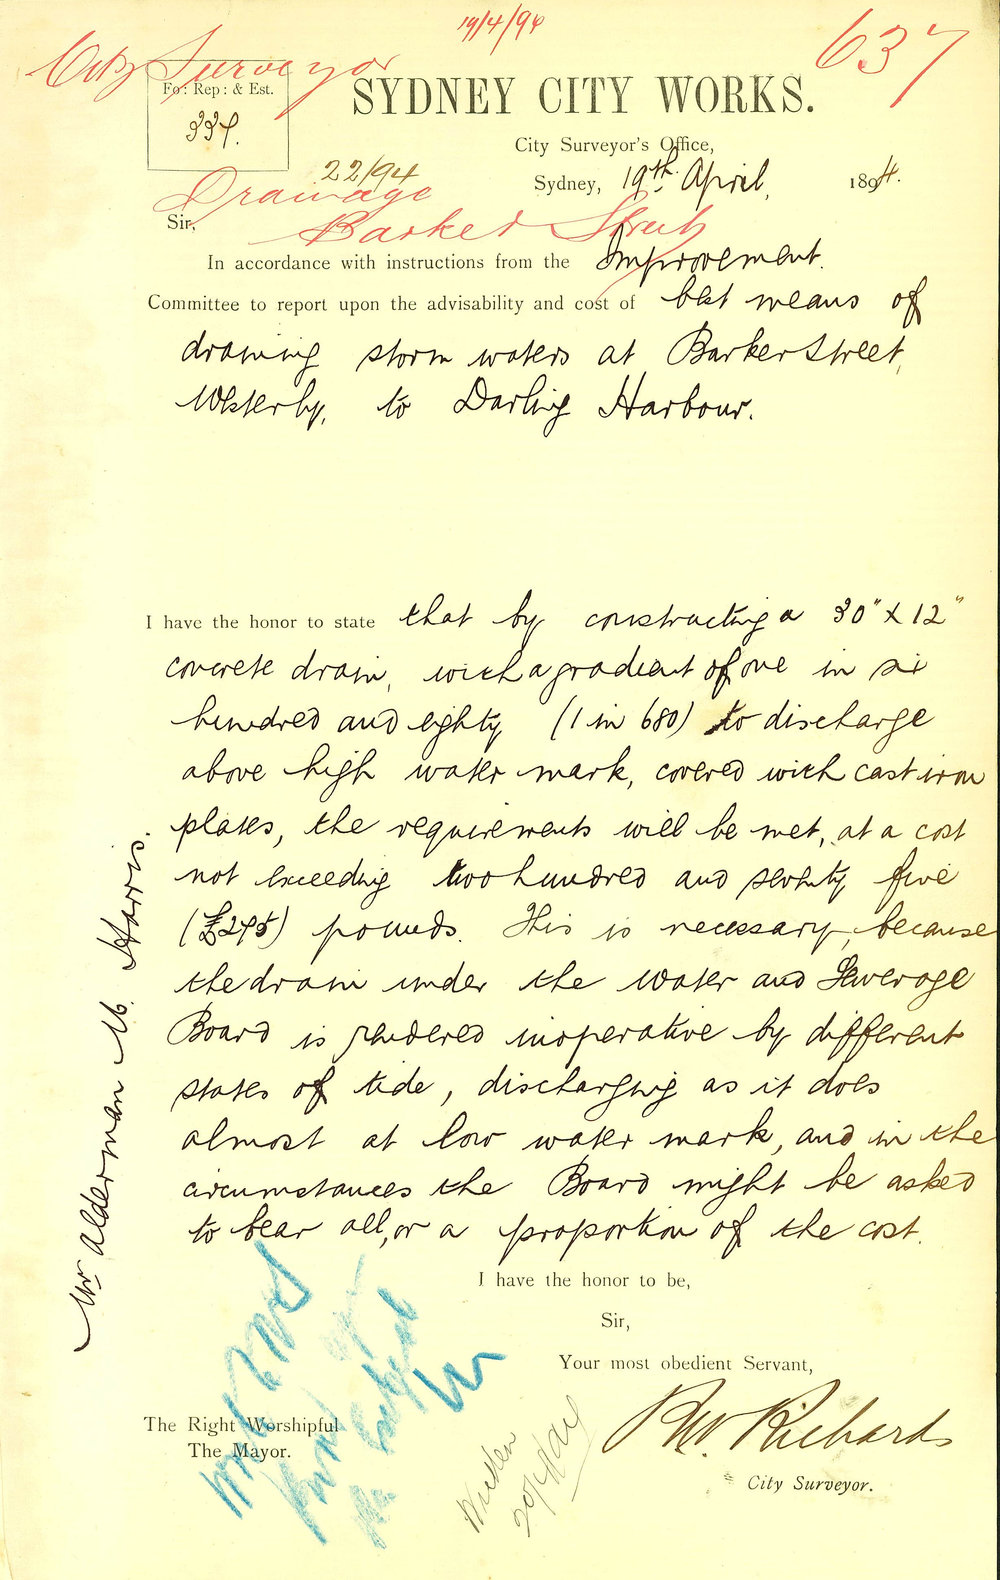 19/4/94
637
City Surveyor
Fo: Rep: & Est.
337.
SYDNEY CITY WORKS.
City Surveyor's Office,
22/94
Sydney, 19th April, 1894.
Drainage
Sir,
Barker Street
In accordance with instructions from the Improvement
Committee to report upon the advisability and cost of best means of
draining storm waters at Barker Street,
Westerly, to Darling Harbour.
I have the honor to state that by constructing a 30" x 12"
concrete drain, with a gradient of one in six
hundred and eighty (1 in 680) to discharge
above high water mark, covered with cast iron
plates, the requirements will be met, at a cost
not exceeding two hundred and seventy five
(£275) pounds. This is necessary, because
the drain under the Water and Sewerage
Board is rendered inoperative by different
states of tide, discharging as it does
almost at low water mark, and in the
circumstances the Board might be asked
to bear all, or a proportion of the cost.
Mr Alderman M. Harris.
I have the honor to be,
Sir,
Your most obedient Servant,
The Right Worshipful
The Mayor.
RW. Richards
City Surveyor.